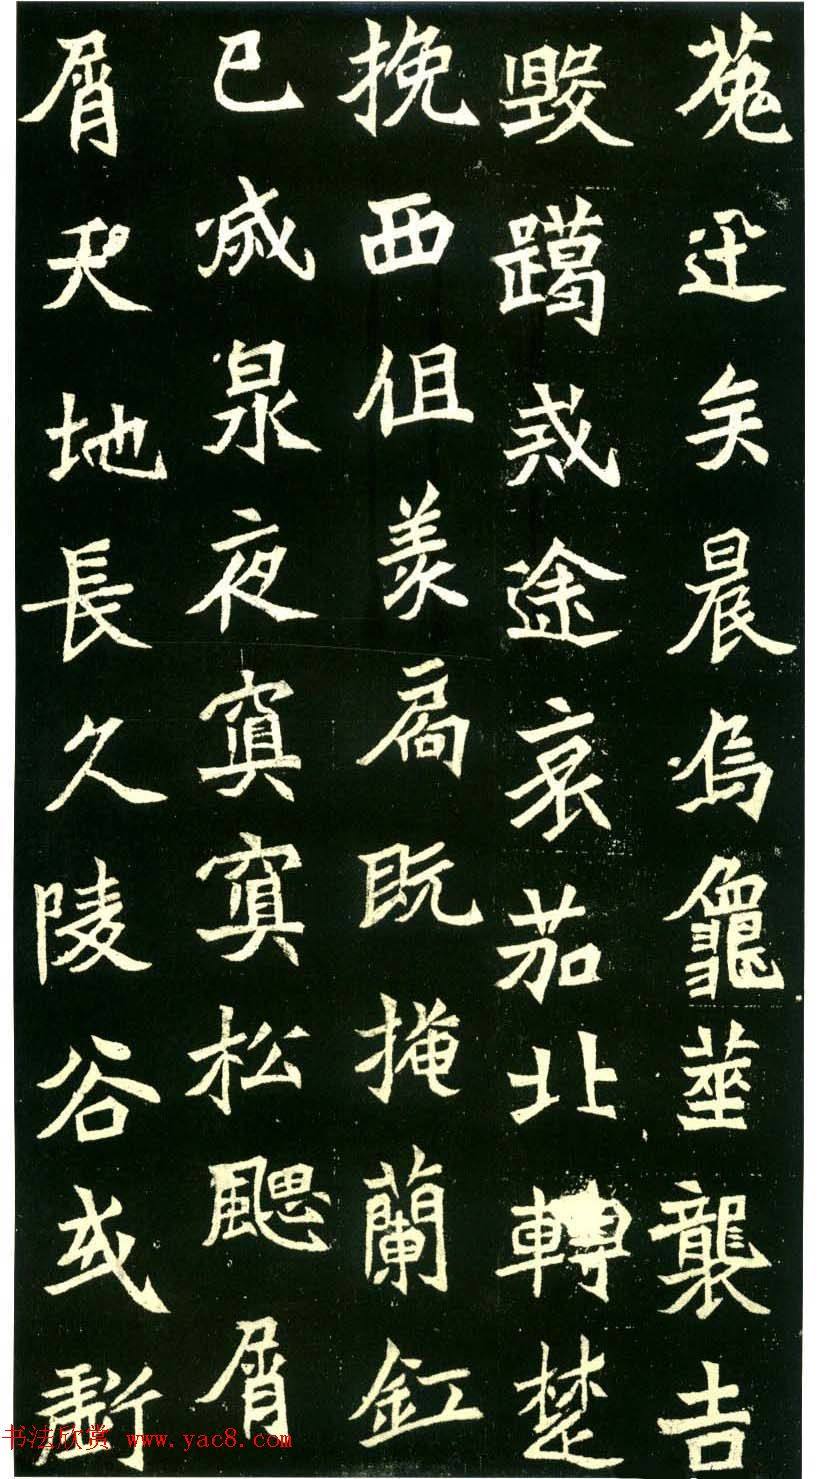 菟迅矣晨烏龜筮襲吉
毀躐戒途哀茄北轉楚
挽西徂羨扃既掩蘭釭
已滅泉夜冥冥松颸屑
屑天地長久陵谷或虧
书法欣赏 www.yac8.com